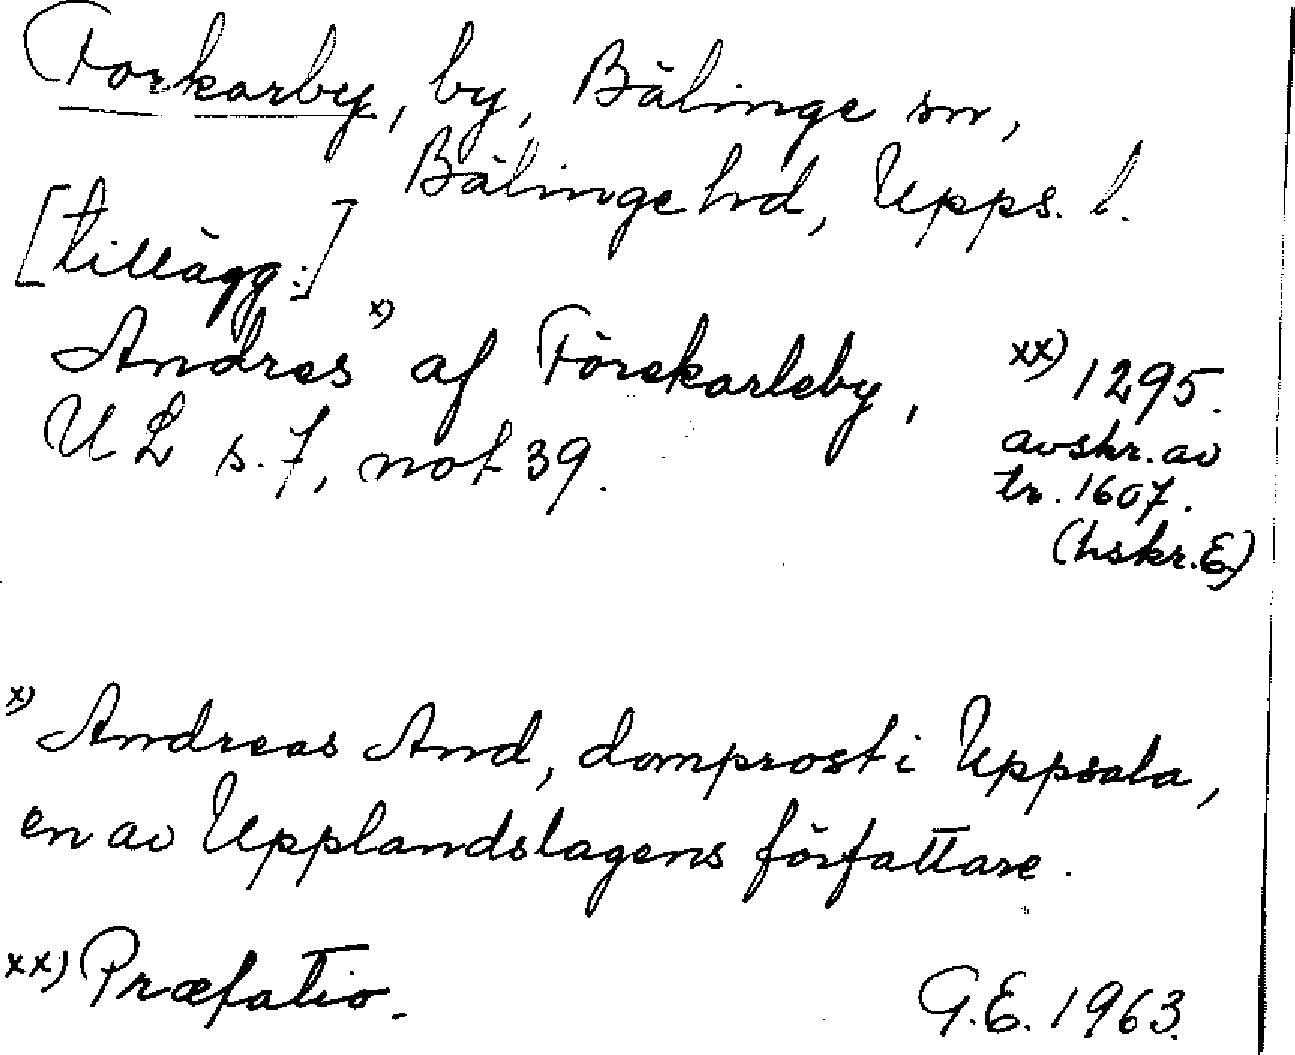 Forkarby, by, Bälinge sn,
Bälinge hd, Upps. l.
[tillägg:]
Andres x) af Förekarleby,
UL s. 7, not 39.
xx) 1295.
avskr. av
tr. 1607.
(hskr. E)
x) Andreas And, domprost i Uppsala,
en av Upplandslagens författare.
xx) Præfatio.
G.E. 1963.